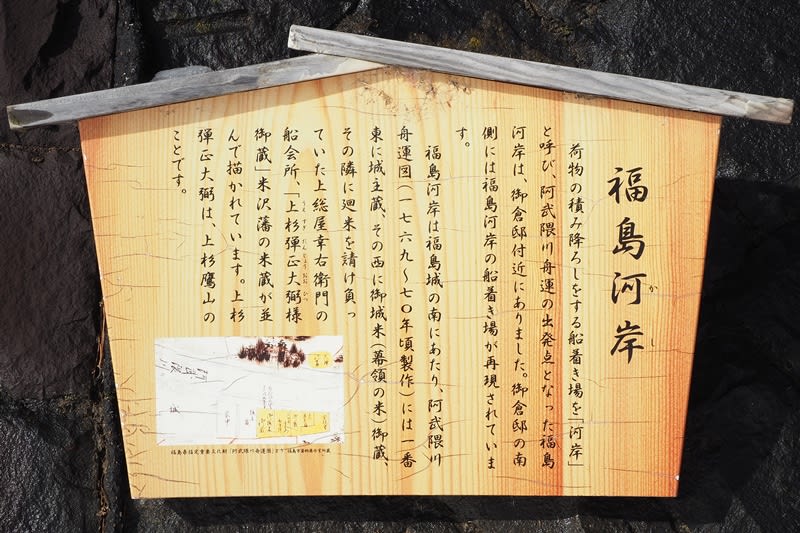 福島河岸
かし
荷物の積み降ろしをする船着き場を「河岸」
と呼び、阿武隈川舟運の出発点となった福島
河岸は、御倉邸付近にありました。御倉邸の南
側には福島河岸の船着き場が再現されていま
す。
福島河岸は福島城の南にあたり、阿武隈川
舟運図(一七六九〜七〇年頃製作)には一番
東に城主蔵、その西に御城米(幕領の米)御蔵、
その隣に廻米を請け負っ
ていた上総屋幸右衛門の
船会所、「上杉弾正大弼様
うえすぎだんじょうおおひつ
御蔵」米沢藩の米蔵が並
んで描かれています。上杉
弾正大弼は、上杉鷹山の
ことです。
阿武隈川
福島県指定重要文化財「阿武隈川舟運図」より